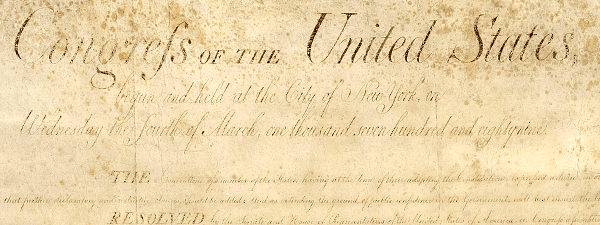 Congreſs OF THE United States,
begun and held at the City of New York, on
Wednesday the Fourth of March, one thousand seven hundred and eighty nine.
THE Conventions of a number of the States, having at the time of their adopting the Constitution, expressed a desire, in or
that further declaratory and restrictive clauses should be added: And as extending the ground of public confidence in the Government, will best insure the be
RESOLVED by the Senate and House of Representatives of the United States of America, in Congress assembled